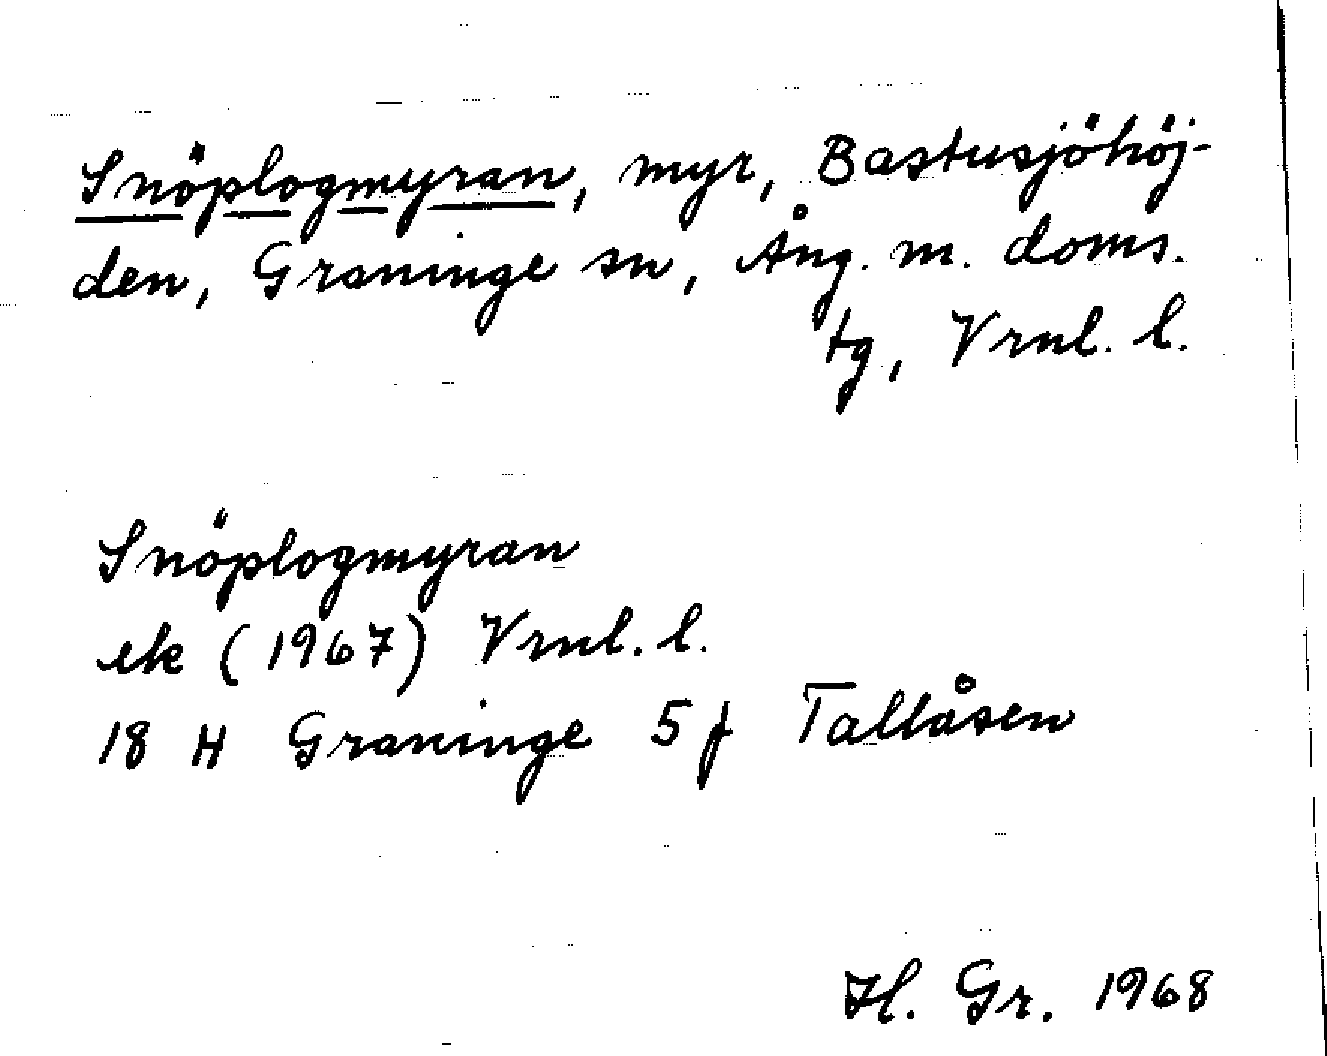 Snöplogmyran, myr, Bastusjöhöj-
den, Graninge sn, Ång. m. doms.
tg, Vrnl. l.
Snöplogmyran
ek (1967) Vrnl. l.
18 H Graninge 5 f Tallåsen
H. Gr. 1968